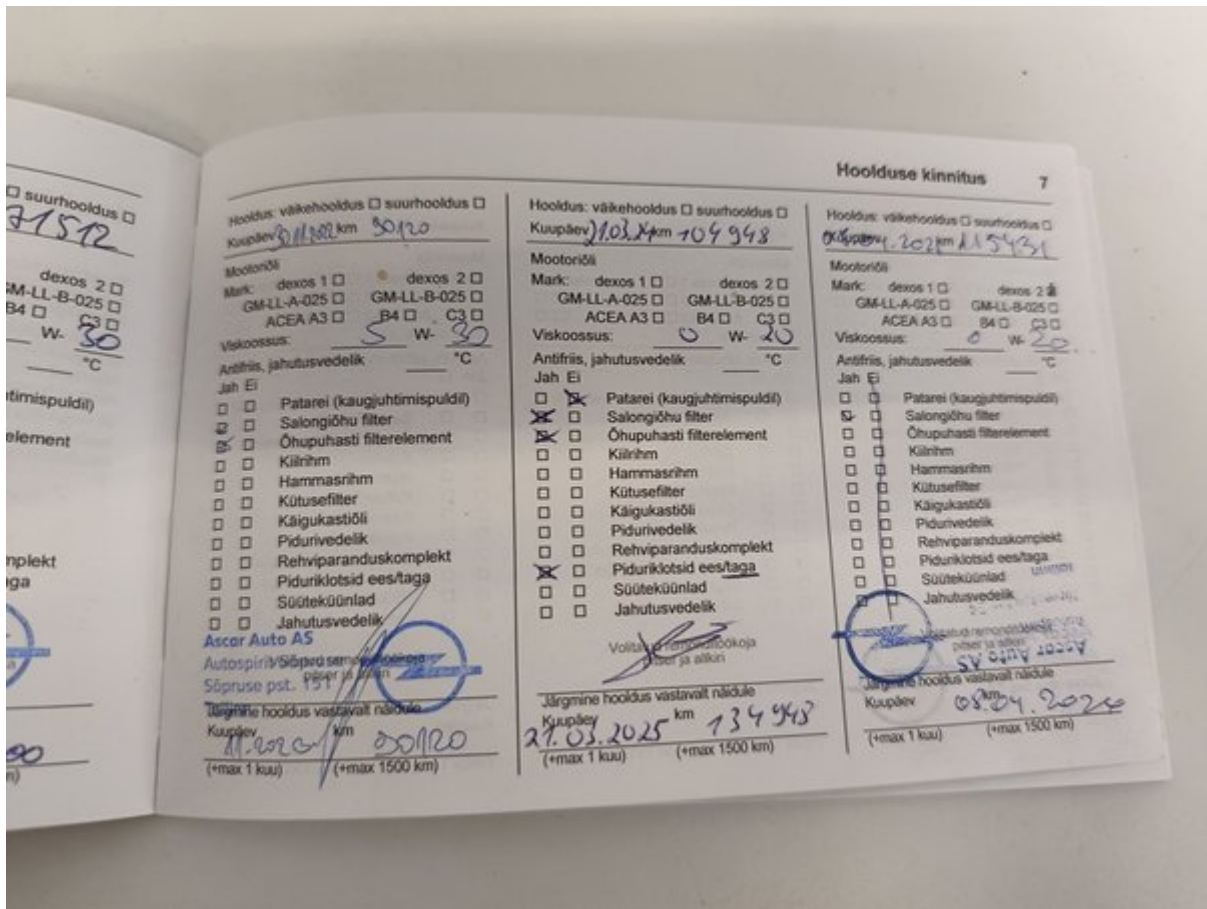 suurhooldus
71512
dexos 2
GM-LL-B-025
B4 C3
W- 30
°C
element
90
Hoolduse kinnitus 7
Hooldus: väikehooldus suurhooldus
Kuupäev 30.11.2022 km 90120
Mootoriõli
Mark: dexos 1 dexos 2
GM-LL-A-025 GM-LL-B-025
ACEA A3 B4 C3
Viskoossus: 5 W- 30
Antifriis, jahutusvedelik °C
Jah Ei
Patarei (kaugjuhtimispuldil)
Salongiõhu filter
Õhupuhasti filterelement
Kiilrihm
Hammasrihm
Kütusefilter
Käigukastiõli
Pidurivedelik
Rehviparanduskomplekt
Piduriklotsid ees/taga
Süüteküünlad
Jahutusvedelik
Ascar Auto AS
Sõpruse pst. 151
Järgmine hooldus vastavalt näidule
Kuupäev km
(+max 1 kuu) (+max 1500 km)
Hooldus: väikehooldus suurhooldus
Kuupäev 21.03.24 km 104 948
Mootoriõli
Mark: dexos 1 dexos 2
GM-LL-A-025 GM-LL-B-025
ACEA A3 B4 C3
Viskoossus: 0 W- 20
Antifriis, jahutusvedelik °C
Jah Ei
Patarei (kaugjuhtimispuldil)
Salongiõhu filter
Õhupuhasti filterelement
Kiilrihm
Hammasrihm
Kütusefilter
Käigukastiõli
Pidurivedelik
Rehviparanduskomplekt
Piduriklotsid ees/taga
Süüteküünlad
Jahutusvedelik
Volitatud remonditöökoja
pitser ja allkiri
Järgmine hooldus vastavalt näidule
Kuupäev km
21.03.2025 134 948
(+max 1 kuu) (+max 1500 km)
Hooldus: väikehooldus suurhooldus
km 115431
Mootoriõli
Mark: dexos 1 dexos 2
GM-LL-A-025 GM-LL-B-025
ACEA A3 B4 C3
Viskoossus: 0 W- 20
Antifriis, jahutusvedelik °C
Jah Ei
Patarei (kaugjuhtimispuldil)
Salongiõhu filter
Õhupuhasti filterelement
Kiilrihm
Hammasrihm
Kütusefilter
Käigukastiõli
Pidurivedelik
Rehviparanduskomplekt
Piduriklotsid ees/taga
Süüteküünlad
Jahutusvedelik
pitser ja allkiri
Ascar Auto AS
Järgmine hooldus vastavalt näidule
Kuupäev km
(+max 1 kuu) (+max 1500 km)